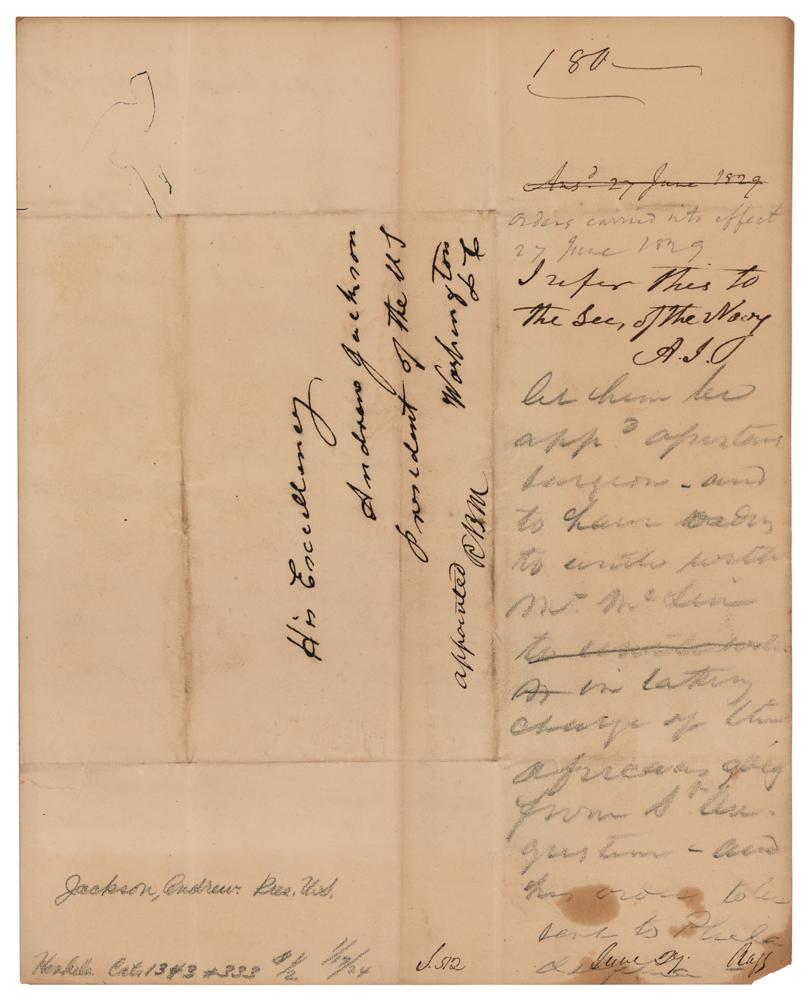 180
Ansd 27 June 1829
orders carried into effect
27 June 1829
I refer this to
the Sec, of the Navy
A.J.
let him be
appd assistant
surgeon - and
to have orders
to unite with
Mr. McLin
in taking
charge of the
Africans going
from St Au-
gustine - and
his orders to be
sent to Phila
delphia
His Excellency
Andrew Jackson
President of the US
Washington
appointed
Jackson, Andrew. Pres. U.S.
Cat. 1343 #333 1/2 1/19/24
J.512
June 27.